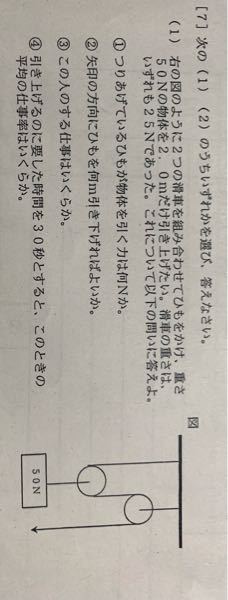 [7] 次の(1)(2)のうちいずれかを選び、答えなさい。
(1) 右の図のように2つの滑車を組み合わせてひもをかけ、重さ
50Nの物体を2.0mだけ引き上げたい。滑車の重さは、
いずれも25Nであった。これについて以下の問いに答えよ。
①つりあげているひもが物体を引く力は何Nか。
②矢印の方向にひもを何m引き下げればよいか。
③この人のする仕事はいくらか。
④引き上げるのに要した時間を30秒とすると、このときの
平均の仕事率はいくらか。
図
50N